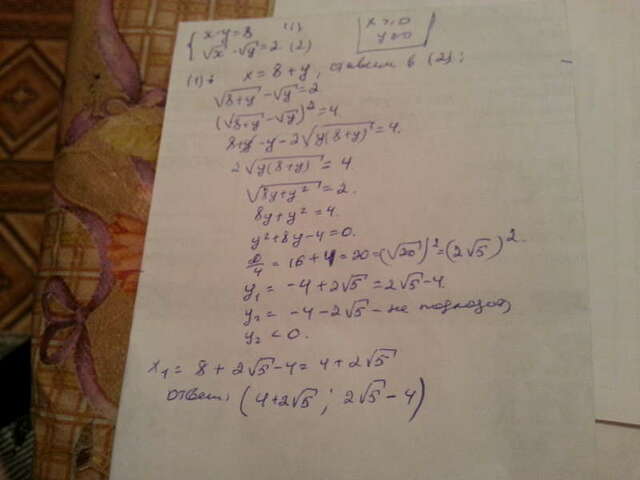 { x-y=8 (1)
√x - √y=2 (2)
x≥0
y≥0
(1): x = 8+y, ставим в (2):
√(8+y) - √y=2
(√(8+y) - √y)²=4
8+y-y-2√(y(8+y))=4
2√(y(8+y)) = 4
√(8y+y²) = 2.
8y+y²=4.
y²+8y-4=0.
D/4 = 16+4=20=(√20)²=(2√5)².
y₁ = -4+2√5 =2√5-4.
y₂ = -4-2√5 - не подходит,
y₂ <0.
x₁ = 8+2√5-4= 4+2√5
ответ: (4+2√5 ; 2√5-4)